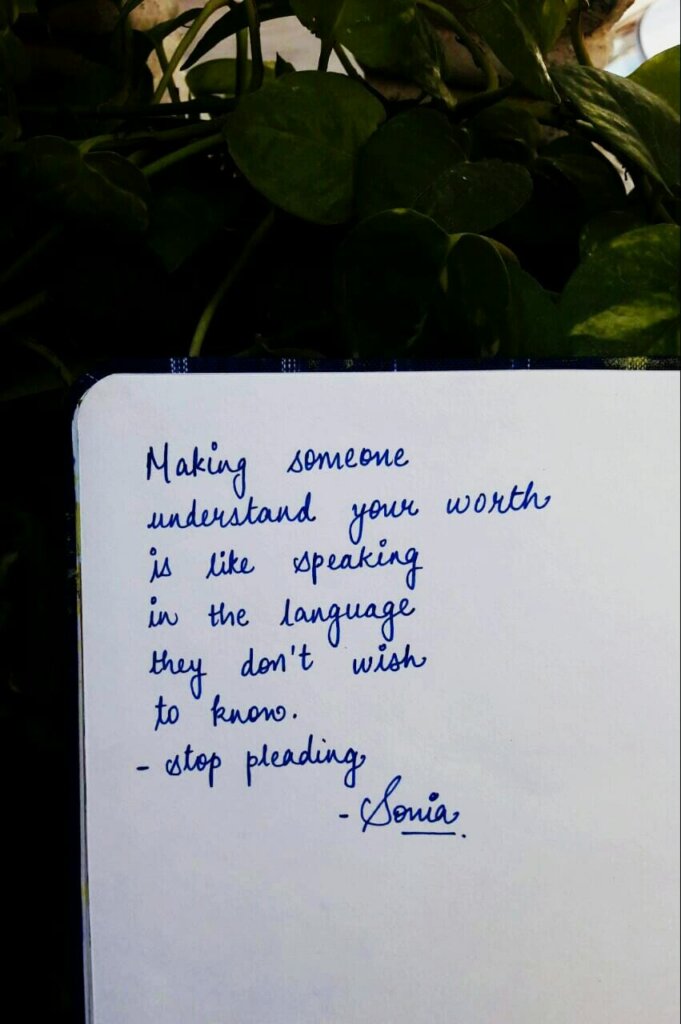 Making someone
understand your worth
is like speaking
in the language
they don't wish
to know.
- stop pleading
- Sonia.